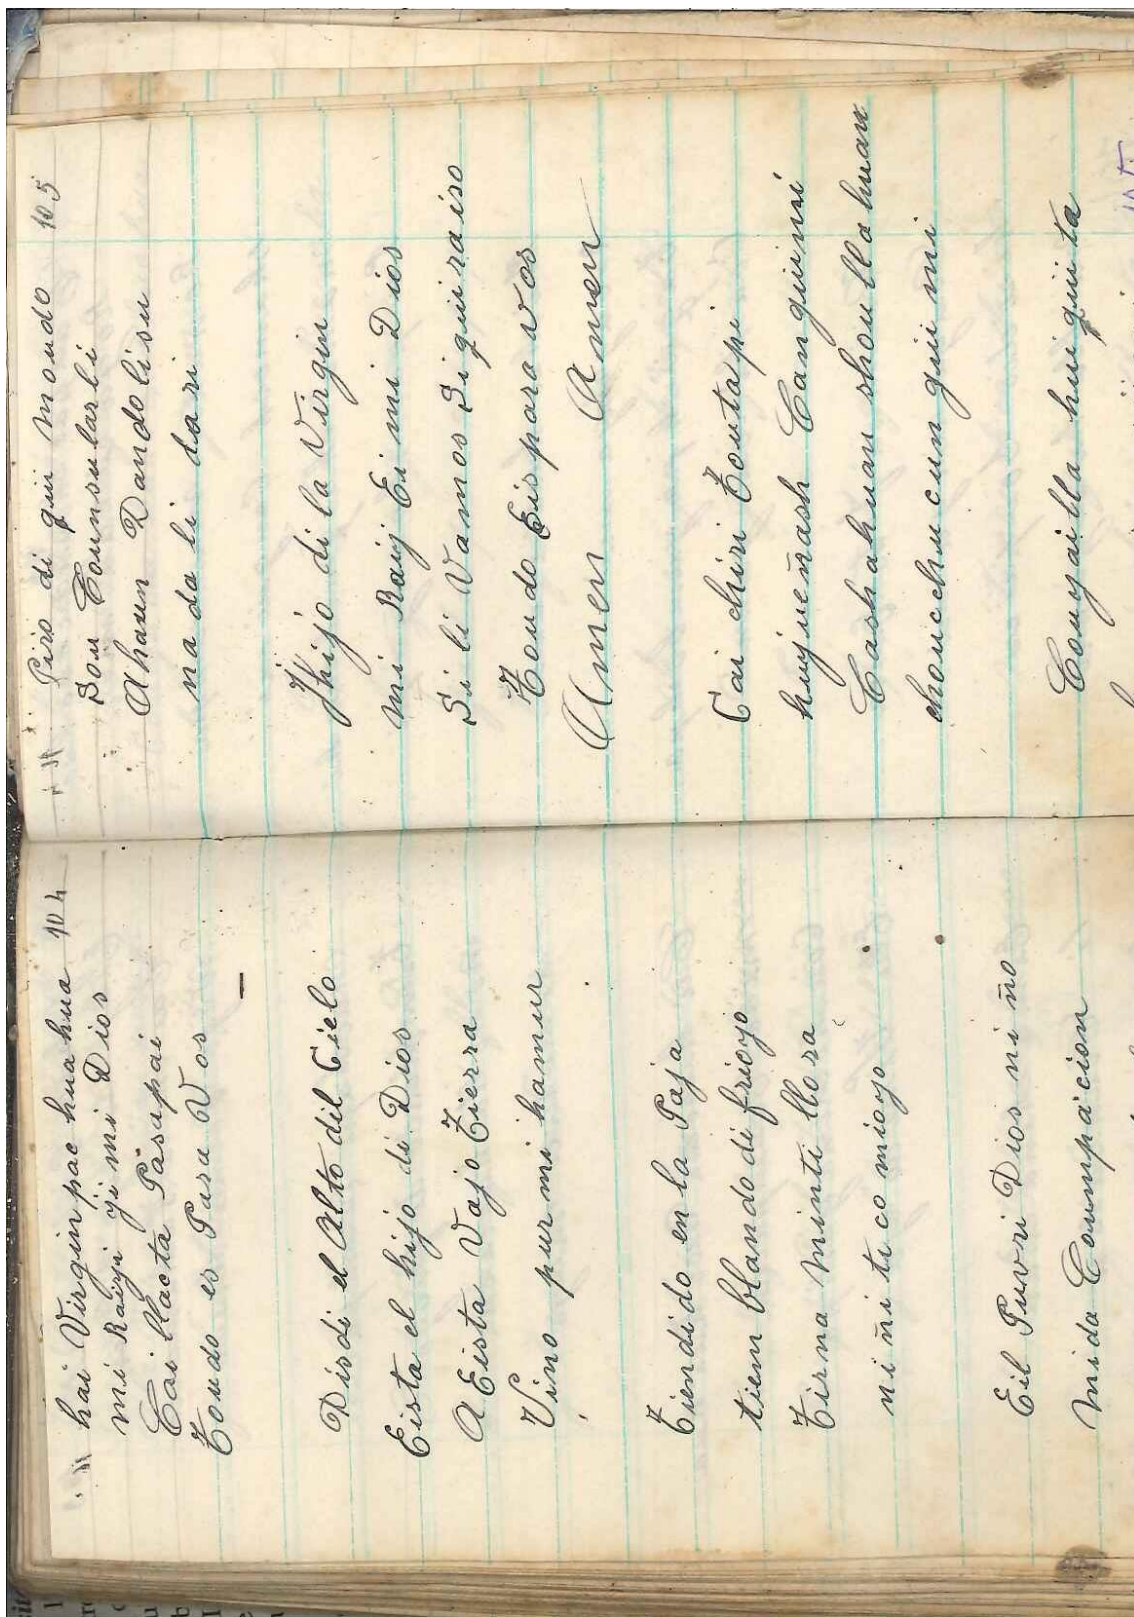 hai Virgin pac hua hua 104
mi Raiyi ji mi Dios
Cai llacta Pasapai
Toudo es Para Vos
Disdi el Alto dil Cielo
Eista el hijo di Dios
A Eista Vajo Tierra
Vino pur mi hamur
Tiendido en la Paja
tiem blando di frioyo
Tirna minti llora
ni ñi ti co mioyo
Eil Puvri Dios ni ño
mi da Coumpacion
Piro di qui moudo 105
Sou Counsularli
Ahaun Dandolisu
nada li dari
Jhijo di la Virgin
mi Raiy Ei mi Dios
Si li Vamos Si qui raiso
Toudo Eis para vos
Amen Amen
Cai chiri Toutapi
huyueñash Canguimi
Cashahuan shoullahuan
chouchucun gui mi
Couyailla hui quita